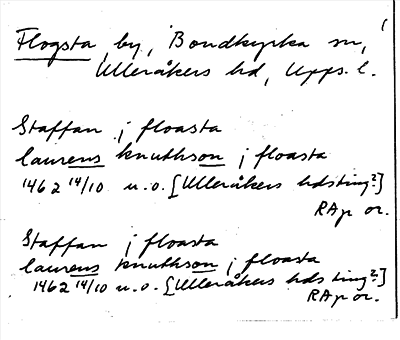 Flogsta, by, Bondkyrka sn,
Ulleråkers hd, Upps. l.
Staffan j floasta
laurens knutsson j floasta
1462 14/10 u.o. [Ulleråkers hdsting?]
RAp or.
Staffan j floasta
laurens knutsson j floasta
1462 14/10 u.o. [Ulleråkers hds ting?]
RAp or.